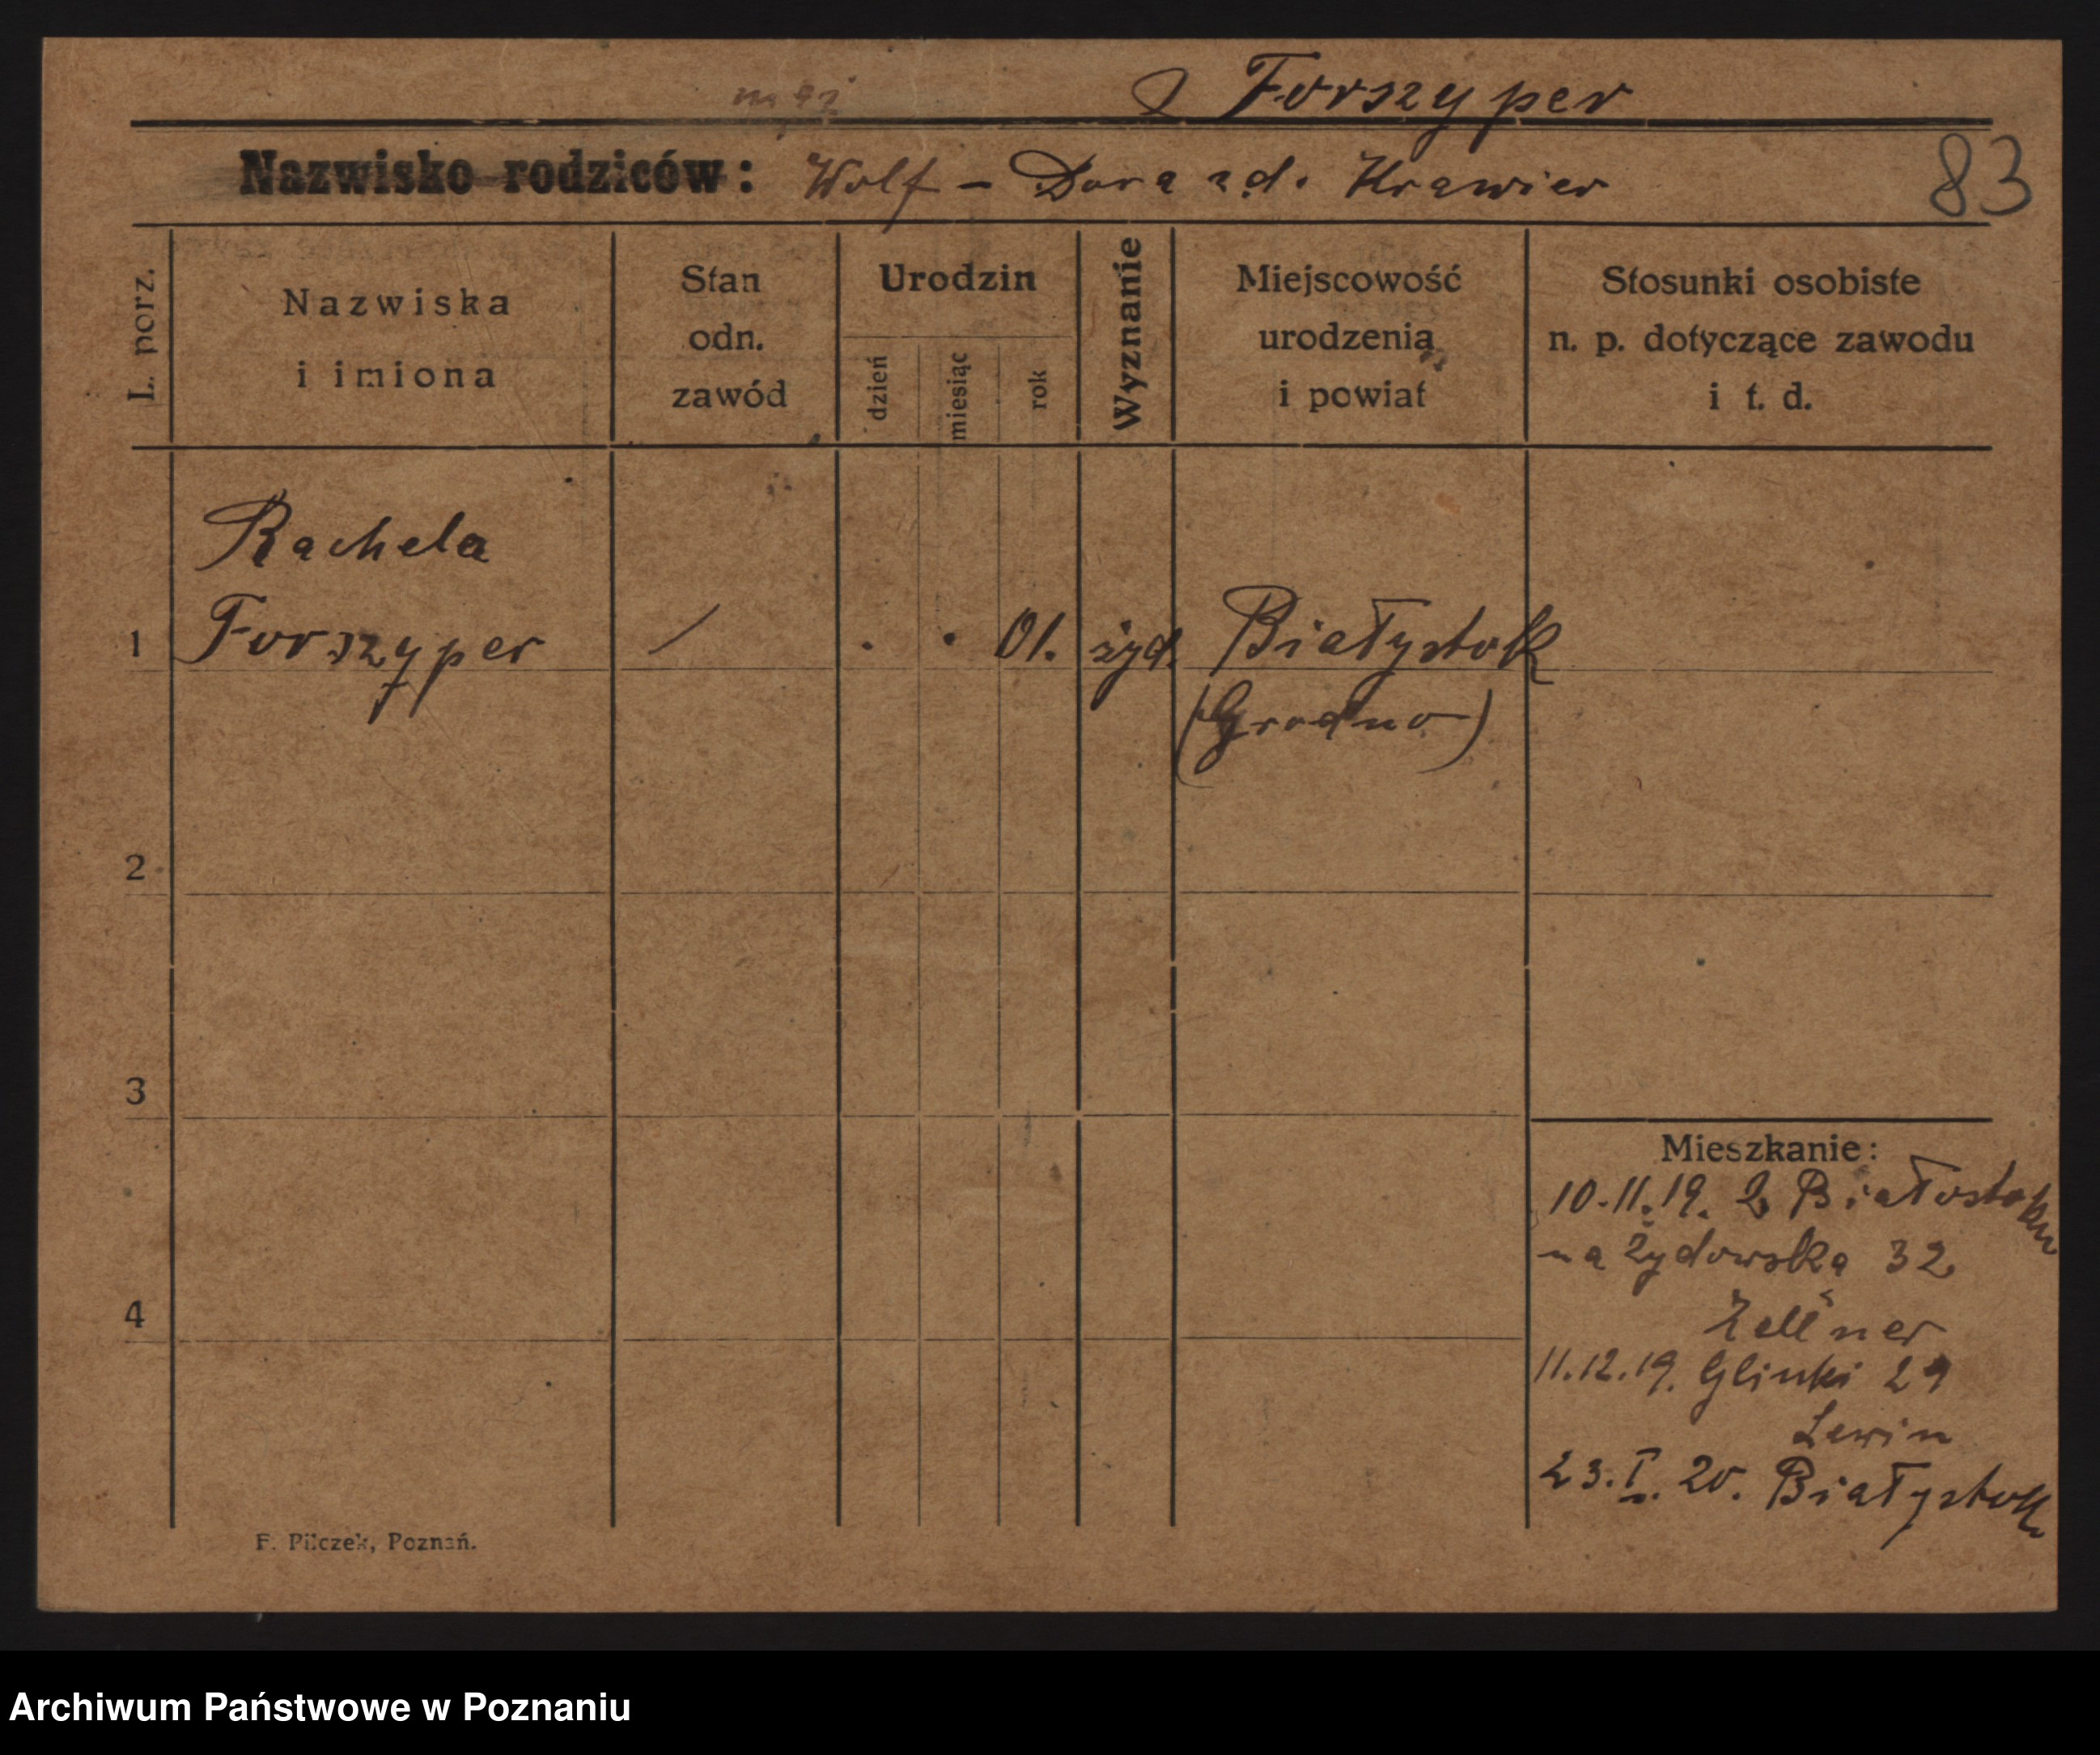 Forszyper
Nazwisko rodziców: Wolf – Dora zd. Krawier
83
L. porz.
Nazwiska
i imiona
Stan
odn.
zawód
Urodzin
dzień
miesiąc
rok
Wyznanie
Miejscowość
urodzenia
i powiat
Stosunki osobiste
n. p. dotyczące zawodu
i t. d.
Rachela
1 Forszyper / . . 01. żyd. Białystok
(Grodno)
2
3
4
Mieszkanie:
10.11.19. z Białostoku
na Żydowską 32
Zellner
11.12.19. Glinki 29
Lewin
23.I.20. Białystok
F. Pilczek, Poznań.
Archiwum Państwowe w Poznaniu